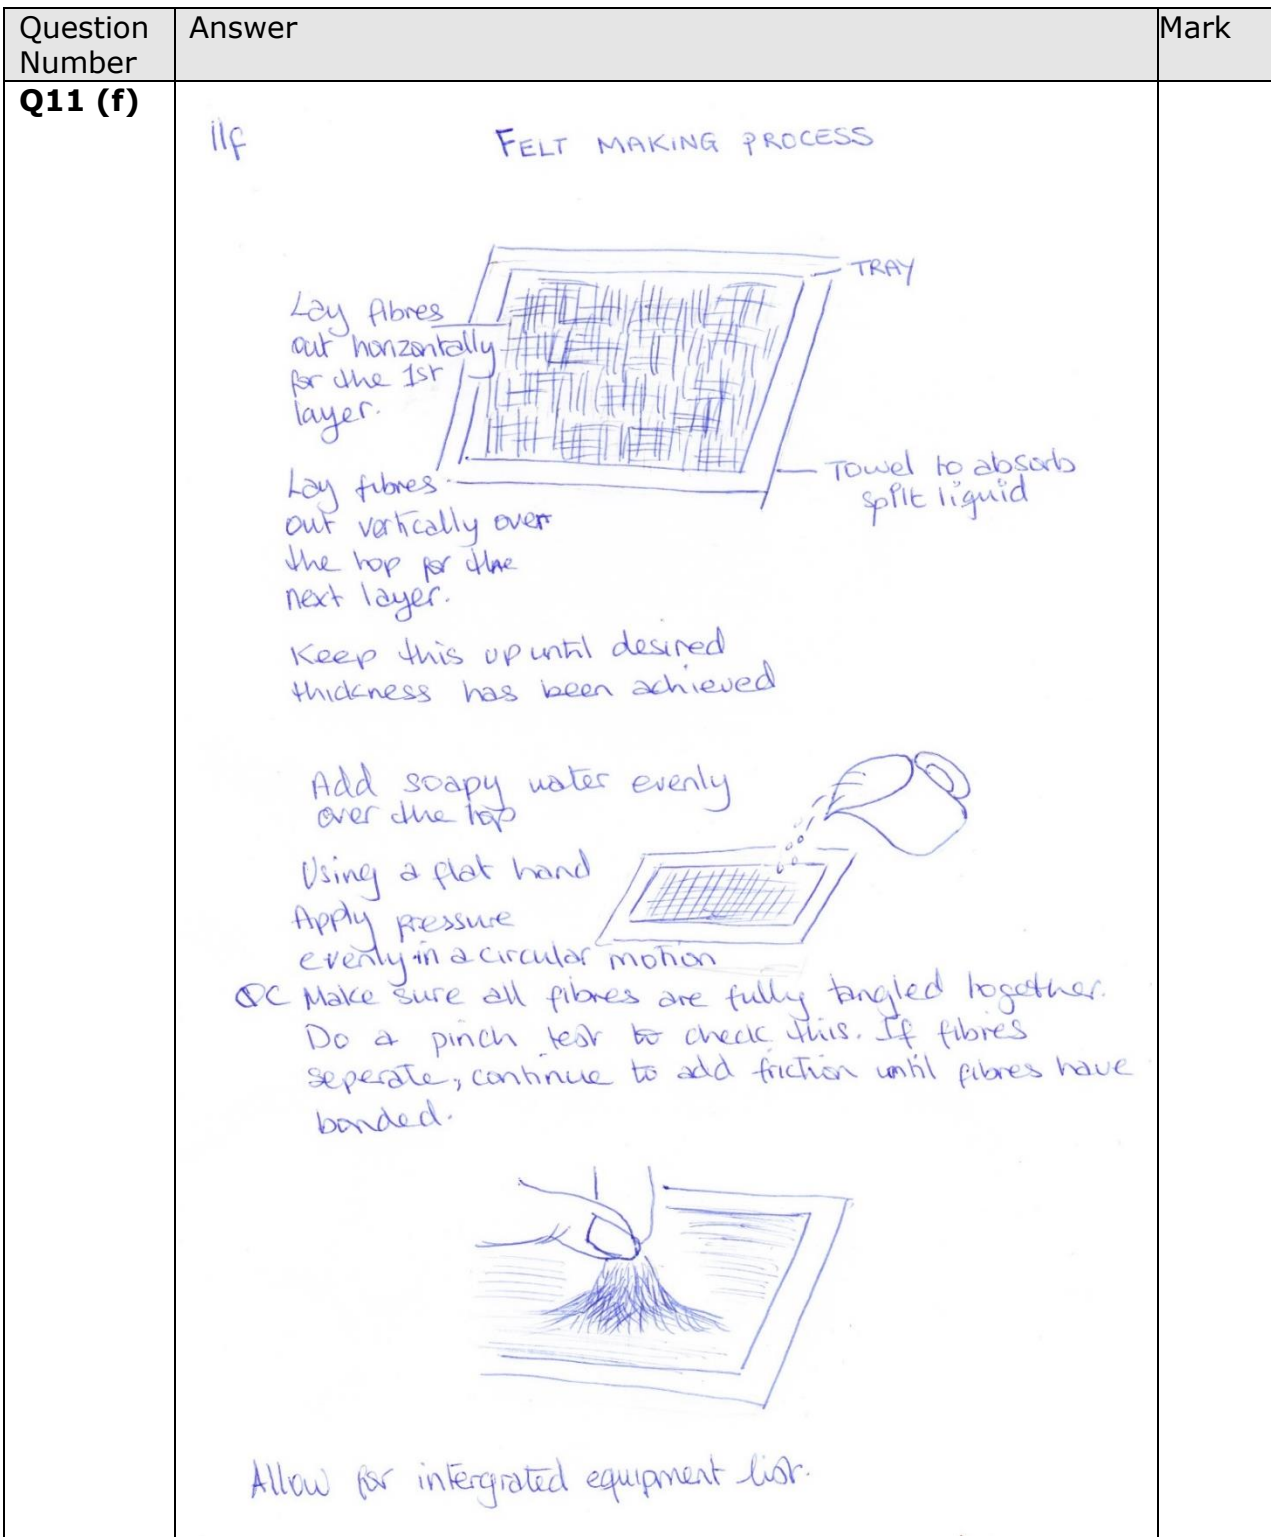 Question Number
Answer
Mark
Q11 (f)
11f
FELT MAKING PROCESS
TRAY
Lay fibres
out horizontally
for the 1st
layer.
Towel to absorb
spilt liquid
Lay fibres
out vertically over
the top for the
next layer.
Keep this up until desired
thickness has been achieved
Add soapy water evenly
over the top
Using a flat hand
Apply pressure
evenly in a circular motion
QC Make sure all fibres are fully tangled together.
Do a pinch test to check this. If fibres
seperate, continue to add friction until fibres have
bonded.
Allow for intergrated equipment list.